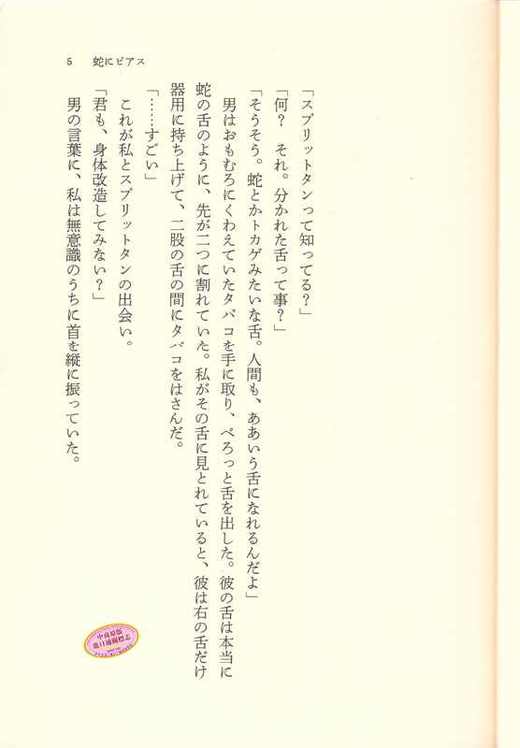 5　蛇にピアス
「スプリットタンって知ってる？」
「何？　それ。分かれた舌って事？」
「そうそう。蛇とかトカゲみたいな舌。人間も、ああいう舌になれるんだよ」
　男はおもむろにくわえていたタバコを手に取り、べろっと舌を出した。彼の舌は本当に
蛇の舌のように、先が二つに割れていた。私がその舌に見とれていると、彼は右の舌だけ
器用に持ち上げて、二股の舌の間にタバコをはさんだ。
「……すごい」
　これが私とスプリットタンの出会い。
「君も、身体改造してみない？」
　男の言葉に、私は無意識のうちに首を縦に振っていた。